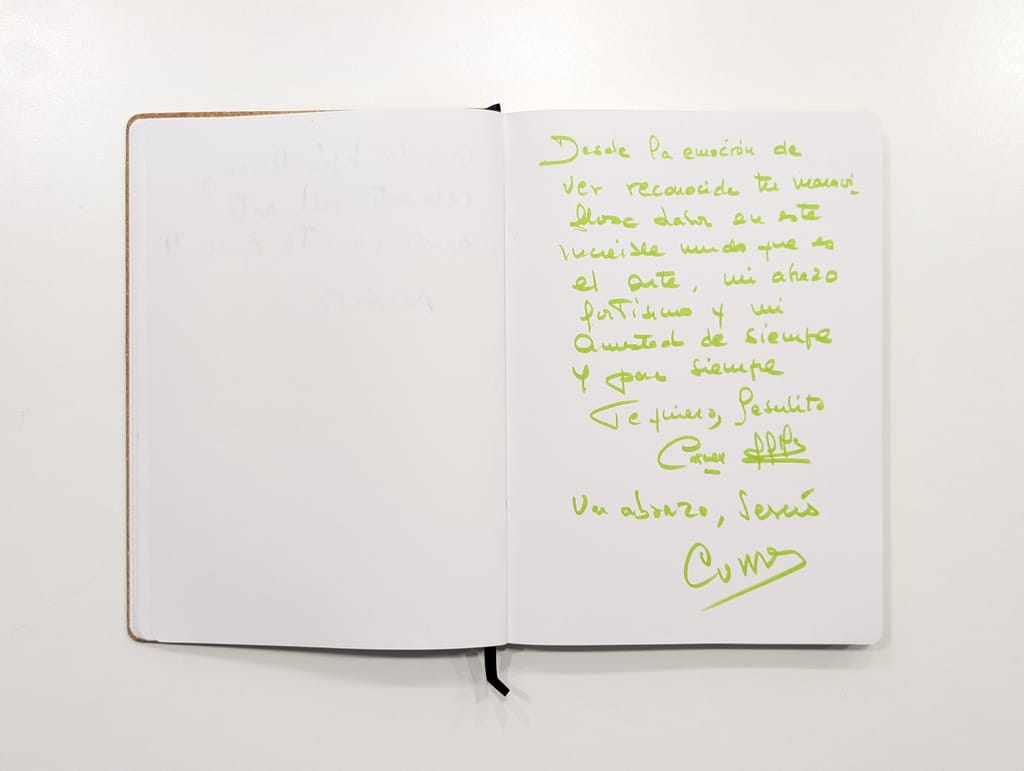 Desde la emoción de
ver reconocida tu maravi-
llosa labor en este
increíble mundo que es
el arte, mi abrazo
fortísimo y mi
amistad de siempre
y para siempre
Te quiero, Jesulito
Un abrazo, Jesús